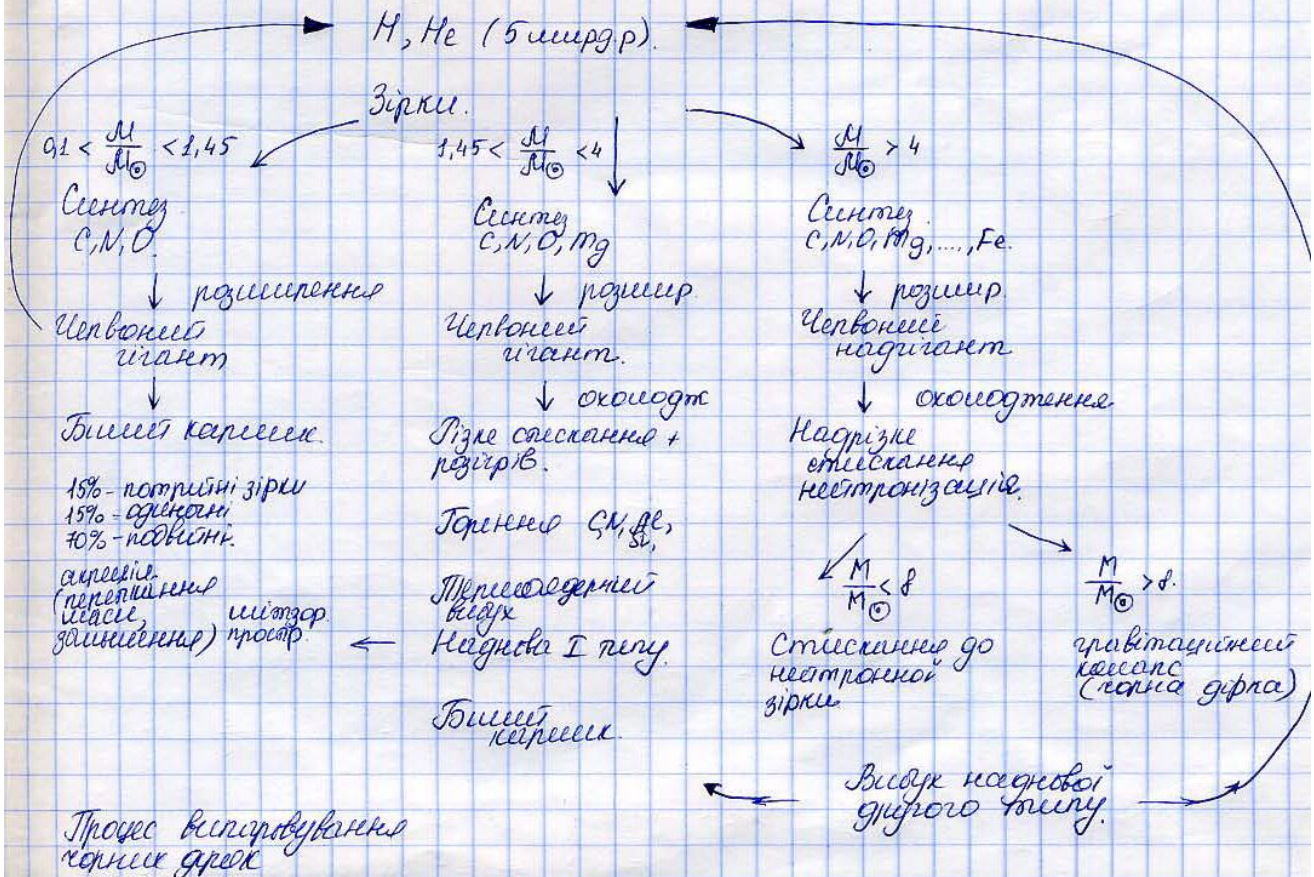 H, He (5 млрд.р).
Зірки.
0,1 < M/M☉ < 1,45
Синтез
C, N, O.
розширення
Червоний
гігант
Білий карлик.
15% - потрійні зірки
15% - одиночні
70% - подвійні.
акреція
(перетікання
маси,
зоми
простр.
1,45 < M/M☉ < 4
Синтез
C, N, O, Mg
розшир.
Червоний
гігант.
охолодж
Різке стискання +
розігрів.
Горіння C, N,
Si,
Термоядерний
вибух
Наднова I типу.
Білий
карлик.
M/M☉ > 4
Синтез
C, N, O, Mg, ...., Fe.
розшир.
Червоний
надгігант
охолодження
Надрізке
стискання
нейтронізація.
M/M☉ < 8
Стискання до
нейтронної
зірки
M/M☉ > 8.
гравітаційний
колапс
(чорна дірка)
Вибух наднової
другого типу.
Процес випаровування
чорних дірок